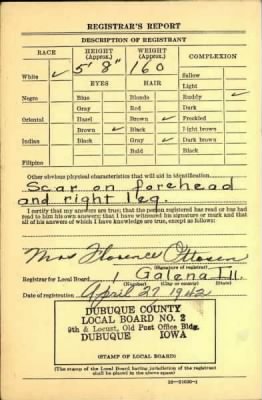 REGISTRAR'S REPORT
DESCRIPTION OF REGISTRANT
RACE HEIGHT (Approx.) WEIGHT (Approx.) COMPLEXION
5' 8" 160
White ✓ Sallow
EYES HAIR Light
Negro Blue Blonde Ruddy ✓
Gray Red Dark
Oriental Hazel Brown ✓ Freckled
Brown ✓ Black Light brown
Indian Black Gray Dark brown
Bald Black
Filipino
Other obvious physical characteristics that will aid in identification
Scar on forehead
and right leg.
I certify that my answers are true; that the person registered has read or has had
read to him his own answers; that I have witnessed his signature or mark and that
all of his answers of which I have knowledge are true, except as follows:
Mrs Florence Ottosen
(Signature of registrar)
Registrar for Local Board 1 Galena Ill.
(Number) (City or county) (State)
Date of registration April 27 1942
DUBUQUE COUNTY
LOCAL BOARD NO. 2
9th & Locust, Old Post Office Bldg.
DUBUQUE IOWA
(STAMP OF LOCAL BOARD)
(The stamp of the Local Board having jurisdiction of the registrant
shall be placed in the above space)